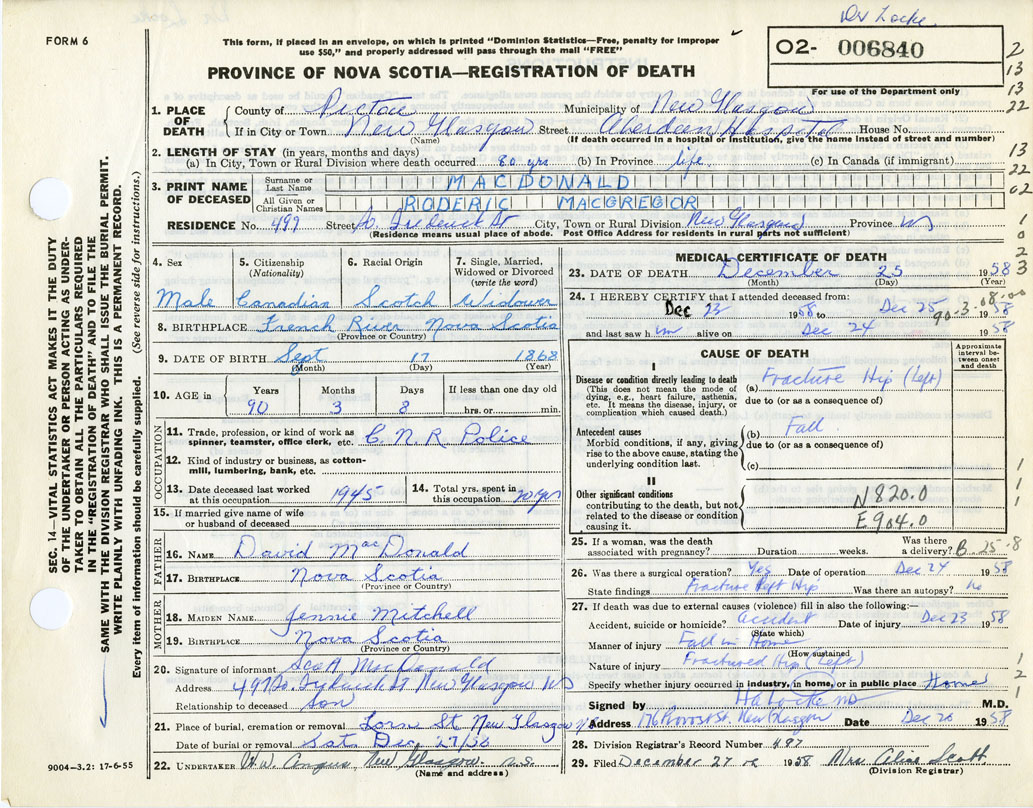 Dr Locke
FORM 6
This form, if placed in an envelope, on which is printed "Dominion Statistics—Free, penalty for improper
use $50," and properly addressed will pass through the mail "FREE"
O2- 006840
For use of the Department only
PROVINCE OF NOVA SCOTIA—REGISTRATION OF DEATH
1. PLACE OF DEATH
County of Pictou Municipality of New Glasgow
If in City or Town New Glasgow Street Aberdeen Hospital House No.
(Name) (If death occurred in a hospital or institution, give the name instead of street and number)
2. LENGTH OF STAY (in years, months and days)
(a) In City, Town or Rural Division where death occurred 80 yrs (b) In Province life (c) In Canada (if immigrant)
3. PRINT NAME OF DECEASED
Surname or Last Name MACDONALD
All Given or Christian Names RODERIC MACGREGOR
RESIDENCE No. 497 Street So. Frederick St City, Town or Rural Division New Glasgow Province NS
(Residence means usual place of abode. Post Office Address for residents in rural parts not sufficient)
4. Sex Male
5. Citizenship (Nationality) Canadian
6. Racial Origin Scotch
7. Single, Married, Widowed or Divorced (write the word) Widower
8. BIRTHPLACE French River Nova Scotia
(Province or Country)
9. DATE OF BIRTH Sept 17 1868
(Month) (Day) (Year)
10. AGE in Years 90 Months 3 Days 8 If less than one day old hrs. or min.
OCCUPATION
11. Trade, profession, or kind of work as spinner, teamster, office clerk, etc. C.N.R Police
12. Kind of industry or business, as cotton-mill, lumbering, bank, etc.
13. Date deceased last worked at this occupation 1945
14. Total yrs. spent in this occupation
15. If married give name of wife or husband of deceased
FATHER
16. NAME David MacDonald
17. BIRTHPLACE Nova Scotia
(Province or Country)
MOTHER
18. MAIDEN NAME Jennie Mitchell
19. BIRTHPLACE Nova Scotia
(Province or Country)
20. Signature of informant MacDonald
Address 497 So. Frederick St New Glasgow NS
Relationship to deceased son
21. Place of burial, cremation or removal Lorne St New Glasgow NS
Date of burial or removal Sat. Dec. 27/58
22. UNDERTAKER H.W. Angus, New Glasgow N.S.
(Name and address)
MEDICAL CERTIFICATE OF DEATH
23. DATE OF DEATH December 25 1958
(Month) (Day) (Year)
24. I HEREBY CERTIFY that I attended deceased from:
Dec 23 1958 to Dec 25 1958
90-3-08.00
and last saw him alive on Dec 24 1958
CAUSE OF DEATH
Approximate interval between onset and death
I
Disease or condition directly leading to death
(This does not mean the mode of dying, e.g., heart failure, asthenia, etc. It means the disease, injury, or complication which caused death.)
(a) Fracture Hip (Left)
due to (or as a consequence of)
Antecedent causes
Morbid conditions, if any, giving rise to the above cause, stating the underlying condition last.
(b) Fall
due to (or as a consequence of)
(c)
II
Other significant conditions
contributing to the death, but not related to the disease or condition causing it.
N820.0
E904.0
25. If a woman, was the death associated with pregnancy? Duration weeks. Was there a delivery? B.25-8
26. Was there a surgical operation? Yes Date of operation Dec 24 1958
State findings Fracture Left Hip Was there an autopsy? no
27. If death was due to external causes (violence) fill in also the following:—
Accident, suicide or homicide? accident Date of injury Dec 23 1958
(State which)
Manner of injury Fall in Home
(How sustained
Nature of injury Fractured Hip (Left)
Specify whether injury occurred in industry, in home, or in public place Home
Signed by HALocke MD M.D.
Address 176 Provost St. New Glasgow Date Dec 26 1958
28. Division Registrar's Record Number 497
29. Filed December 27 1958 Mrs. Aline Scott
(Division Registrar)
SEC. 14—VITAL STATISTICS ACT MAKES IT THE DUTY
OF THE UNDERTAKER OR PERSON ACTING AS UNDER-
TAKER TO OBTAIN ALL THE PARTICULARS REQUIRED
IN THE "REGISTRATION OF DEATH" AND TO FILE THE
SAME WITH THE DIVISION REGISTRAR WHO SHALL ISSUE THE BURIAL PERMIT.
WRITE PLAINLY WITH UNFADING INK. THIS IS A PERMANENT RECORD.
Every item of information should be carefully supplied. (See reverse side for instructions.)
9004-3.2: 17-6-55
2
13
13
22
13
22
02
1
0
2
3
1
1
1
1
2
1